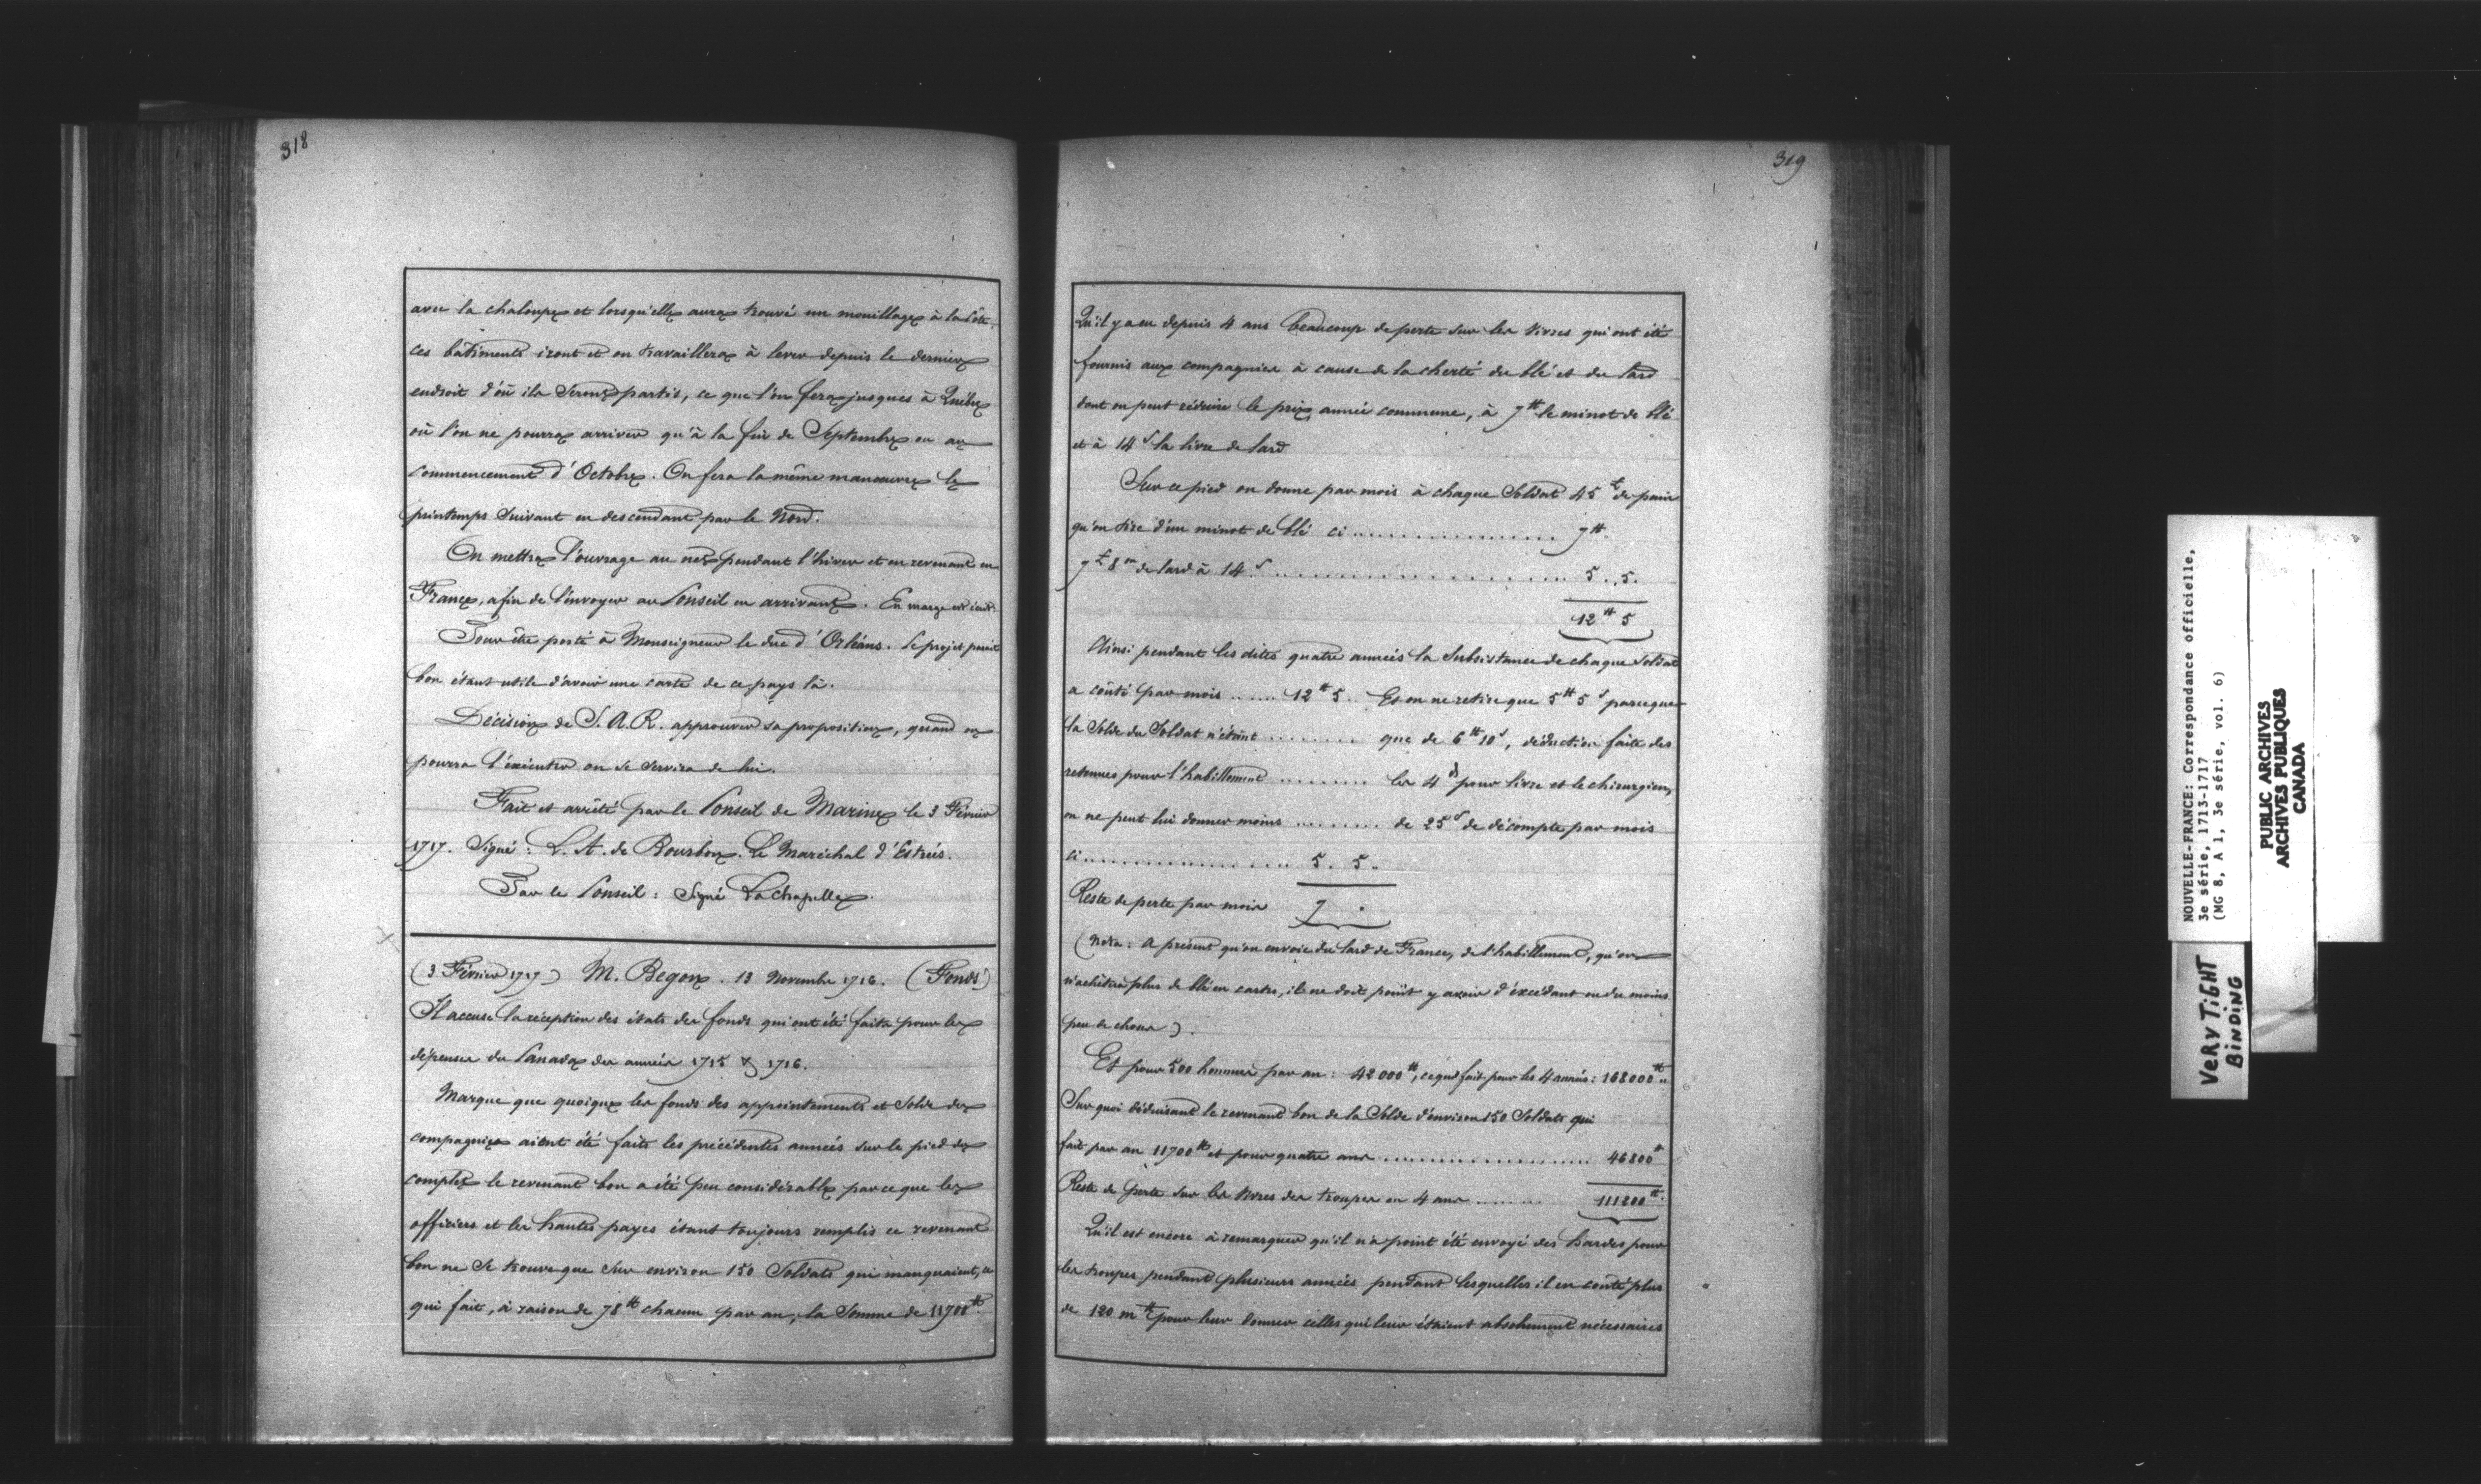 318
avec la chaloupe et lorsqu'elle aura trouvé un mouillage à la côte,
ces bâtiments iront et on travaillera à lever depuis le dernier
endroit d'où ils seront partis, ce que l'on fera jusques à Québec
où l'on ne pourra arriver qu'à la fin de Septembre ou au
commencement d'Octobre. On fera la même manœuvre le
printemps suivant en descendant par le Nord.
On mettra l'ouvrage au net pendant l'hiver et en revenant en
France, afin de l'envoyer au Conseil en arrivant. En marge est écrit:
Pour être porté à Monseigneur le duc d'Orléans. Le projet parait
bon étant utile d'avoir une carte de ce pays là.
Décision de S. A. R. approuver sa proposition, quand on
pourra l'exécuter on se servira de lui.
Fait et arrêté par le Conseil de Marine le 3 Février
1717. Signé: L. A. de Bourbon. Le Maréchal d'Estrées.
Par le Conseil: Signé LaChapelle.
(3 Février 1717) M. Begon. 13 Novembre 1716. (Fonds)
Il accuse la réception des états des fonds qui ont été faits pour les
dépenses du Canada des années 1715 & 1716.
Marque que quoique les fonds des appointements et solde des
compagnies aient été faits les précédentes années sur le pied des
complet le revenant bon a été peu considérable parce que les
officiers et les hautes payes étant toujours remplis ce revenant
bon ne se trouve que sur environ 150 Soldats qui manquaient, ce
qui fait, à raison de 78tt chacun par an, la somme de 11700tt.
319
Qu'il y a eu depuis 4 ans beaucoup de perte sur les vivres qui ont été
fournis aux compagnies à cause de la cherté du blé et du lard
dont on peut réduire le prix, année commune, à 7tt le minot de blé
et à 14s la livre de lard
Sur ce pied on donne par mois à chaque Soldat 45℔ de pain
qu'on tire d'un minot de blé ci ................ 7tt.
7℔ 8on de lard à 14s ........................ 5. 5.
12tt 5
Ainsi pendant les dites quatre années la subsistance de chaque soldat
a coûté par mois ...... 12tt 5. Et on ne retire que 5tt 5s parceque
la solde du Soldat n'étant ......... que de 6tt 10s, déduction faite des
retenues pour l'habillement ......... les 4d pour livre et le chirurgien,
on ne peut lui donner moins ......... de 25s de décompte par mois
ci .................. 5. 5.
Reste de perte par mois 7 .
(Nota: A présent qu'on envoie du lard de France, de l'habillement, qu'on
n'achètera plus de blé en cartes, il ne doit point y avoir d'excédant ou du moins
peu de chose).
Et pour 500 hommes par an: 42000tt, ce qui fait pour les 4 années: 168000tt
Sur quoi déduisant le revenant bon de la Solde d'environ 150 Soldats qui
fait par an 11700tt et pour quatre ans ..................... 46800tt
Reste de perte sur les vivres des troupes en 4 ans ........ 111200tt.
Qu'il est encore à remarquer qu'il n'a point été envoyé des hardes pour
les troupes pendant plusieurs années pendant lesquelles il en coûté plus
de 120 mtt pour leur donner celles qui leur étaient absolument nécessaires
NOUVELLE-FRANCE: Correspondance officielle,
3e série, 1713-1717
(MG 8, A 1, 3e série, vol. 6)
PUBLIC ARCHIVES
ARCHIVES PUBLIQUES
CANADA
VERY TIGHT
BINDING